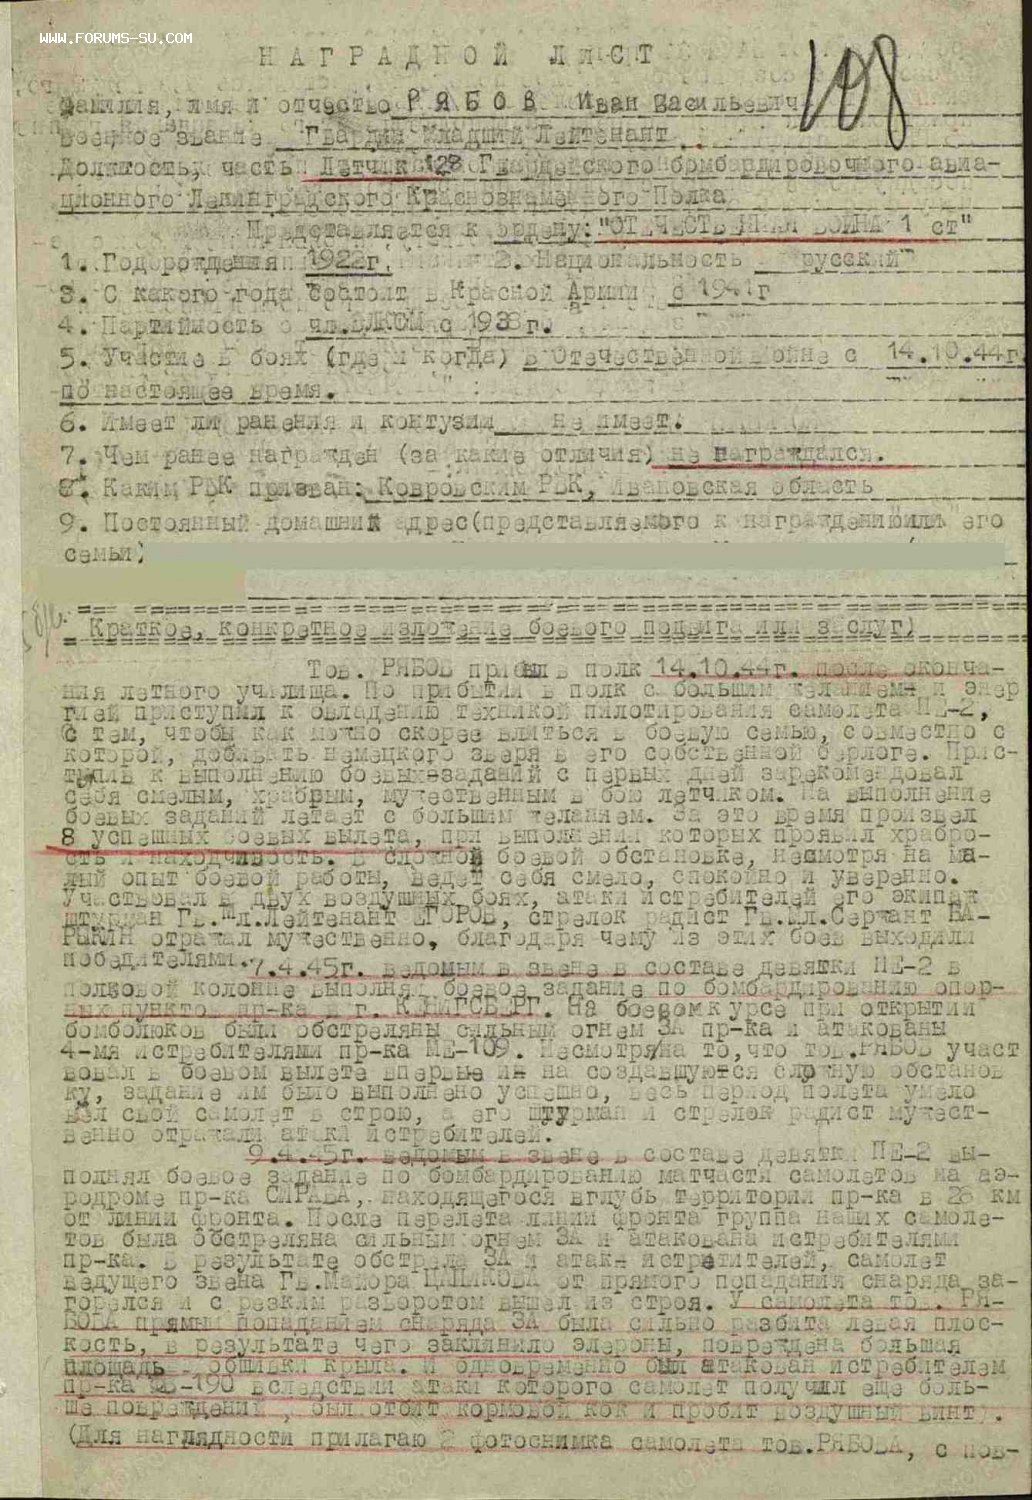 WWW.FORUMS-SU.COM
НАГРАДНОЙ ЛИСТ
108
Фамилия, имя и отчество РЯБОВ Иван Васильевич
Военное звание Гвардии Младший Лейтенант
Должность, часть Летчик 128 Гвардейского бомбардировочного авиа-
ционного Ленинградского Краснознаменного Полка
Представляется к ордену: "ОТЕЧЕСТВЕННАЯ ВОЙНА 1 ст"
1. Год рождения 1922г. 2. Национальность русский
3. С какого года состоит в Красной Армии с 1941г
4. Партийность чл.ВЛКСМ с 1938г.
5. Участие в боях (где и когда) в Отечественной войне с 14.10.44г
по настоящее время.
6. Имеет ли ранения и контузии не имеет.
7. Чем ранее награжден (за какие отличия) не награждался.
8. Каким РВК призван: Ковровским РВК, Ивановская область
9. Постоянный домашний адрес(представляемого к награждению или его
семьи)
Краткое, конкретное изложение боевого подвига или заслуг)
Тов. РЯБОВ прибыл в полк 14.10.44г. после оконча-
ния летного училища. По прибытии в полк с большим желанием и энер
гией приступил к овладению техникой пилотирования самолета ПЕ-2,
с тем, чтобы как можно скорее влиться в боевую семью, совместно с
которой, добивать немецкого зверя в его собственной берлоге. Прис-
тупив к выполнению боевых заданий с первых дней зарекомендовал
себя смелым, храбрым, мужественным в бою летчиком. На выполнение
боевых заданий летает с большим желанием. За это время произвел
8 успешных боевых вылета, при выполнении которых проявил храбро-
сть и находчивость. В сложной боевой обстановке, несмотря на ма-
лый опыт боевой работы, ведет себя смело, спокойно и уверенно.
Участвовал в двух воздушных боях, атаки истребителей его экипаж
штурман Гв.мл.Лейтенант ЕГОРОВ, стрелок радист Гв.Мл.Сержант
отражал мужественно, благодаря чему из этих боев выходили
победителями.
7.4.45г. ведомым в звене в составе девятки ПЕ-2 в
полковой колонне выполнял боевое задание по бомбардированию опор-
ных пунктов пр-ка в г. КЕНИГСБЕРГ. На боевом курсе при открытии
бомболюков были обстреляны сильным огнем ЗА пр-ка и атакованы
4-мя истребителями пр-ка МЕ-109. Несмотря на то,что тов.РЯБОВ участ
вовал в боевом вылете впервые и на создавшуюся сложную обстанов
ку, задание им было выполнено успешно, весь период полета умело
вел свой самолет в строю, а его штурман и стрелок радист мужест-
венно отражали атаки истребителей.
9.4.45г. ведомым в звене в составе девятки ПЕ-2 вы-
полнял боевое задание по бомбардированию матчасти самолетов на аэ-
родроме пр-ка находящегося вглубь территории пр-ка в 28 км
от линии фронта. После перелета линии фронта группа наших самоле-
тов была обстреляна сильным огнем ЗА и атакована истребителями
пр-ка. В результате обстрела ЗА и атак истретителей, самолет
ведущего звена Гв.Майора от прямого попадания снаряда за-
горелся и с резким разворотом вышел из строя. У самолета тов. РЯ-
БОВА прямым попаданием снаряда ЗА была сильно разбита левая плос-
кость, в результате чего заклинило элероны, повреждена большая
площадь обшивки крыла. И одновременно был атакован истребителем
пр-ка вследствии атаки которого самолет получил еще боль-
ше повреждений, был отбит кормовой кок и пробит воздушный винт).
(Для наглядности прилагаю 2 фотоснимка самолета тов.РЯБОВА, с пов-